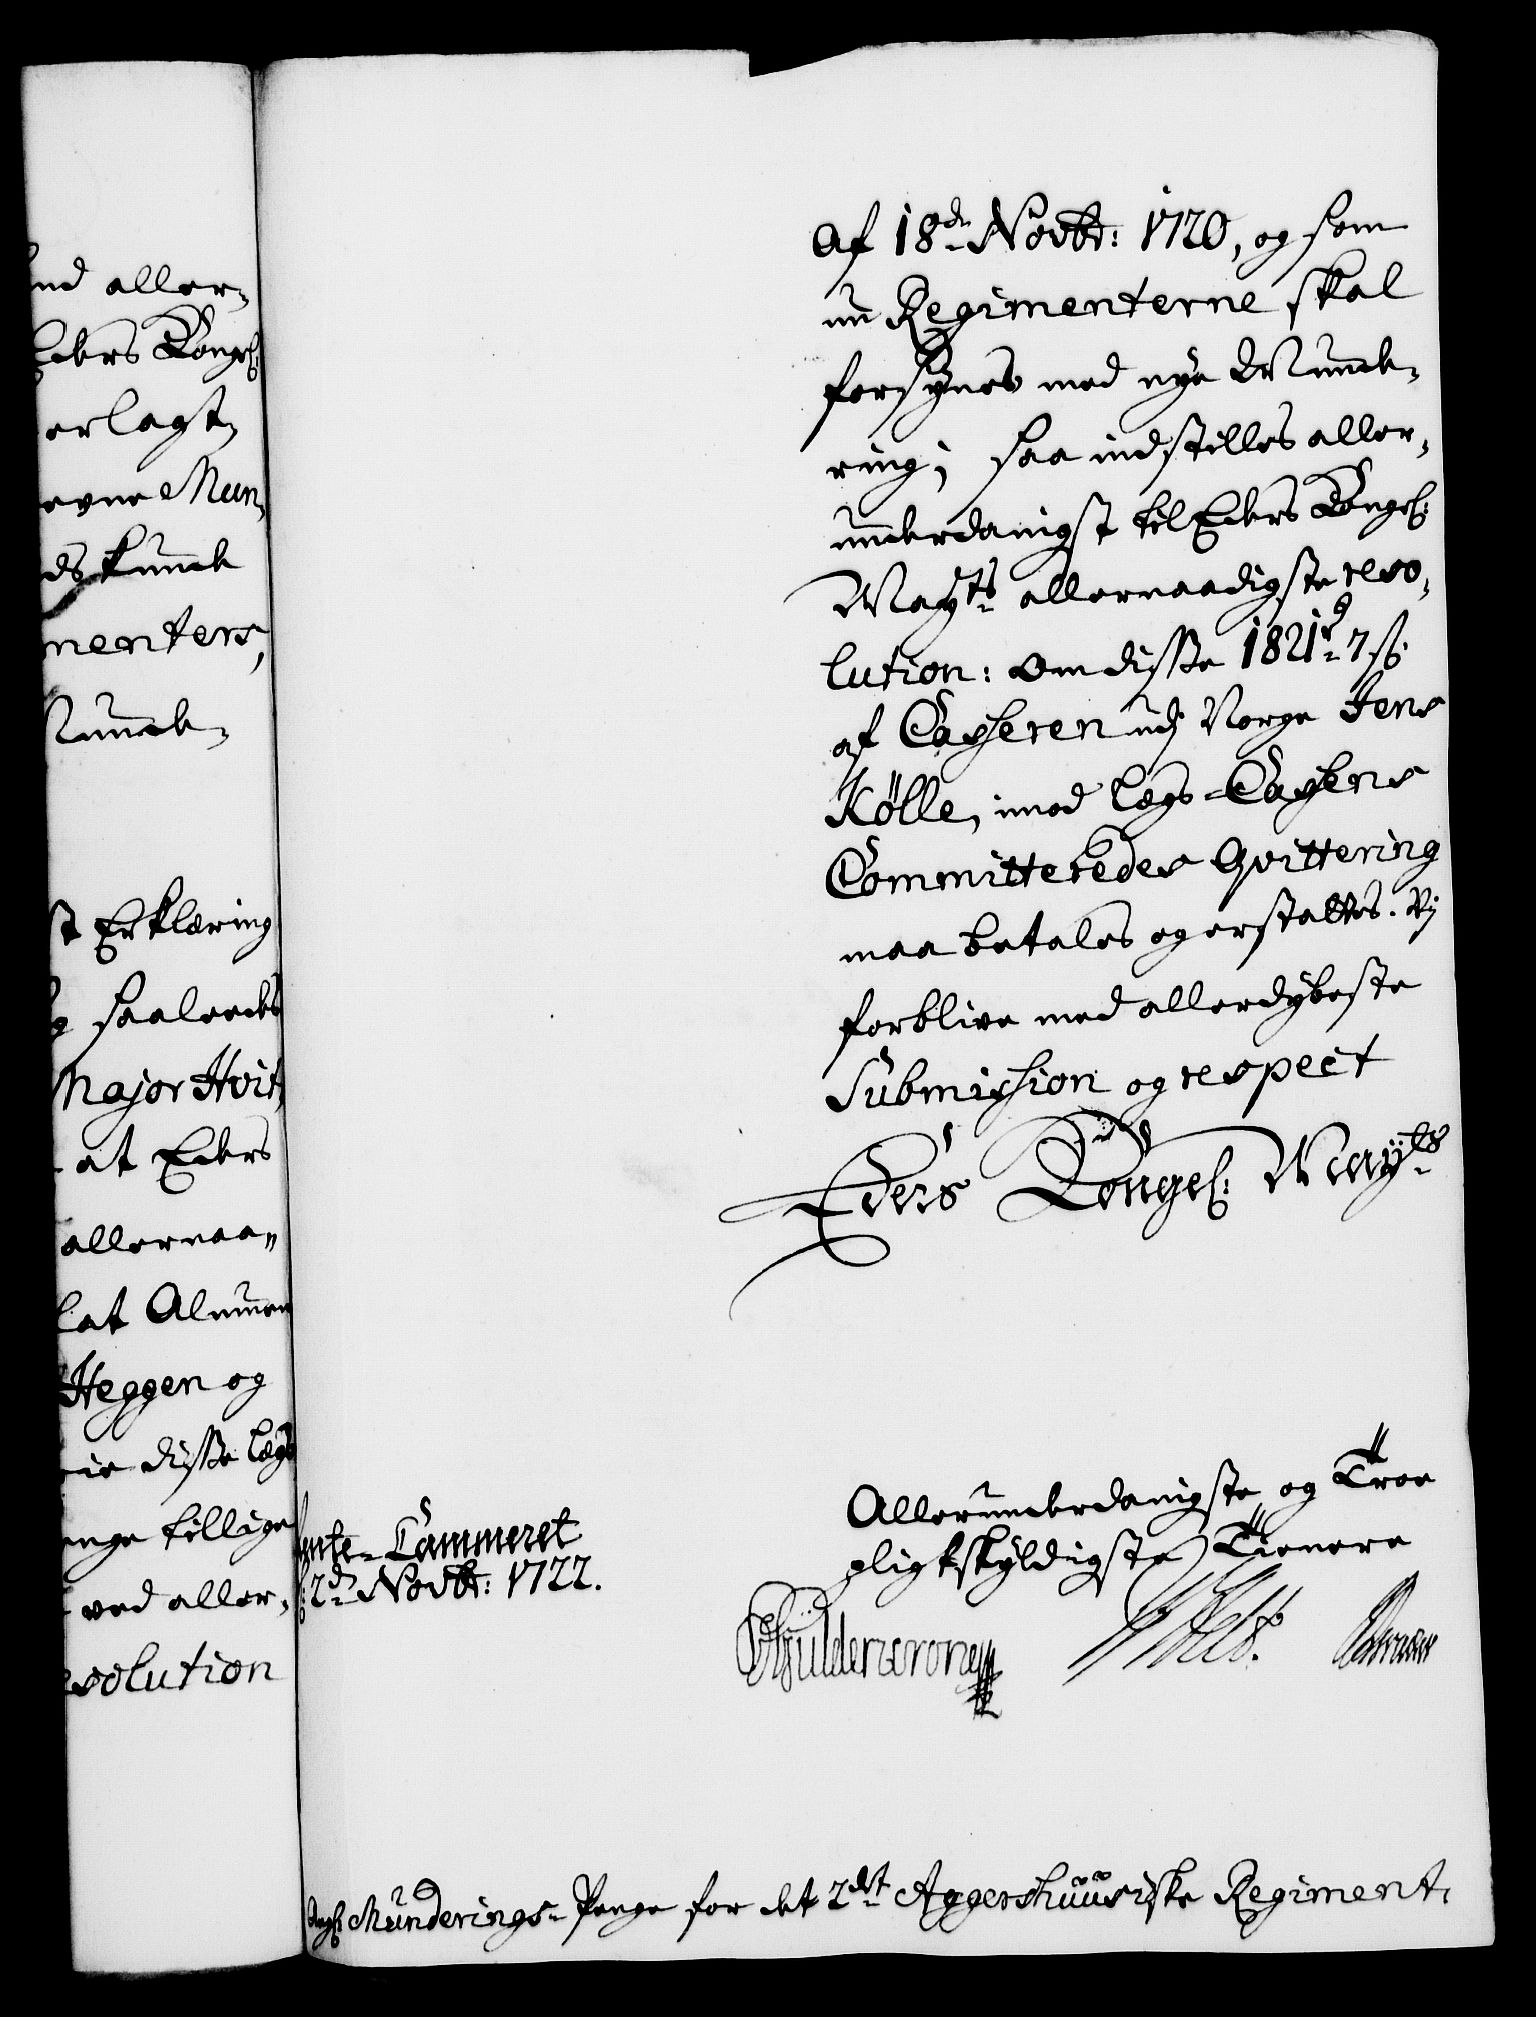 ders Kongel:
erlagt,
evne Mun,
ds kunde
menters,
Munde,
st Erklæring
saaleedes
Major Hvit,
at Eders
allernaa,,
lat Almuen
Heggen og
disse Lægs
enge tillige
ved aller,
esolution
Af 18de Novbr: 1720, og som
nu Regimenterne skal
forsynes med nye Munde,
ring; saa indstilles aller,
underdanigst til Eders Kongel:
Mayts allernaadigste reso,
lution: om disse 1821rd 7 s:
af Casseren udj Norge Jens
Kölle, imod Lægs-Cassens
Committeredes Qvittering
maa betales og erstattes. Vj
forblive med allerdybeste
Submission og respect
Eders Kongel: Mayts
Allerunderdanigste og Troe
pligtskyldigste Tienere
ente-Cammeret
2de Novbr: 1722.
Güldencrone
Munderings-Penge for det 2det Aggershuusiske Regiment.